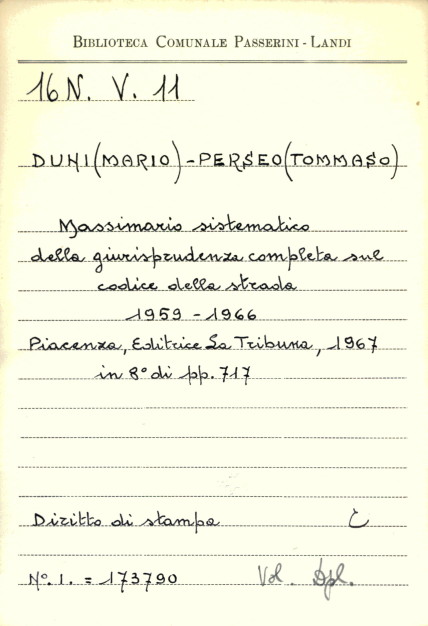 BIBLIOTECA COMUNALE PASSERINI - LANDI
16 N. V. 11
DUNI (MARIO) - PERSEO (TOMMASO)
Massimario sistematico
della giurisprudenza completa sul
codice della strada
1959 - 1966
Piacenza, Editrice La Tribuna, 1967
in 8° di pp. 717
Diritto di stampa
N°. I. = 173790 Vol. Dpl.